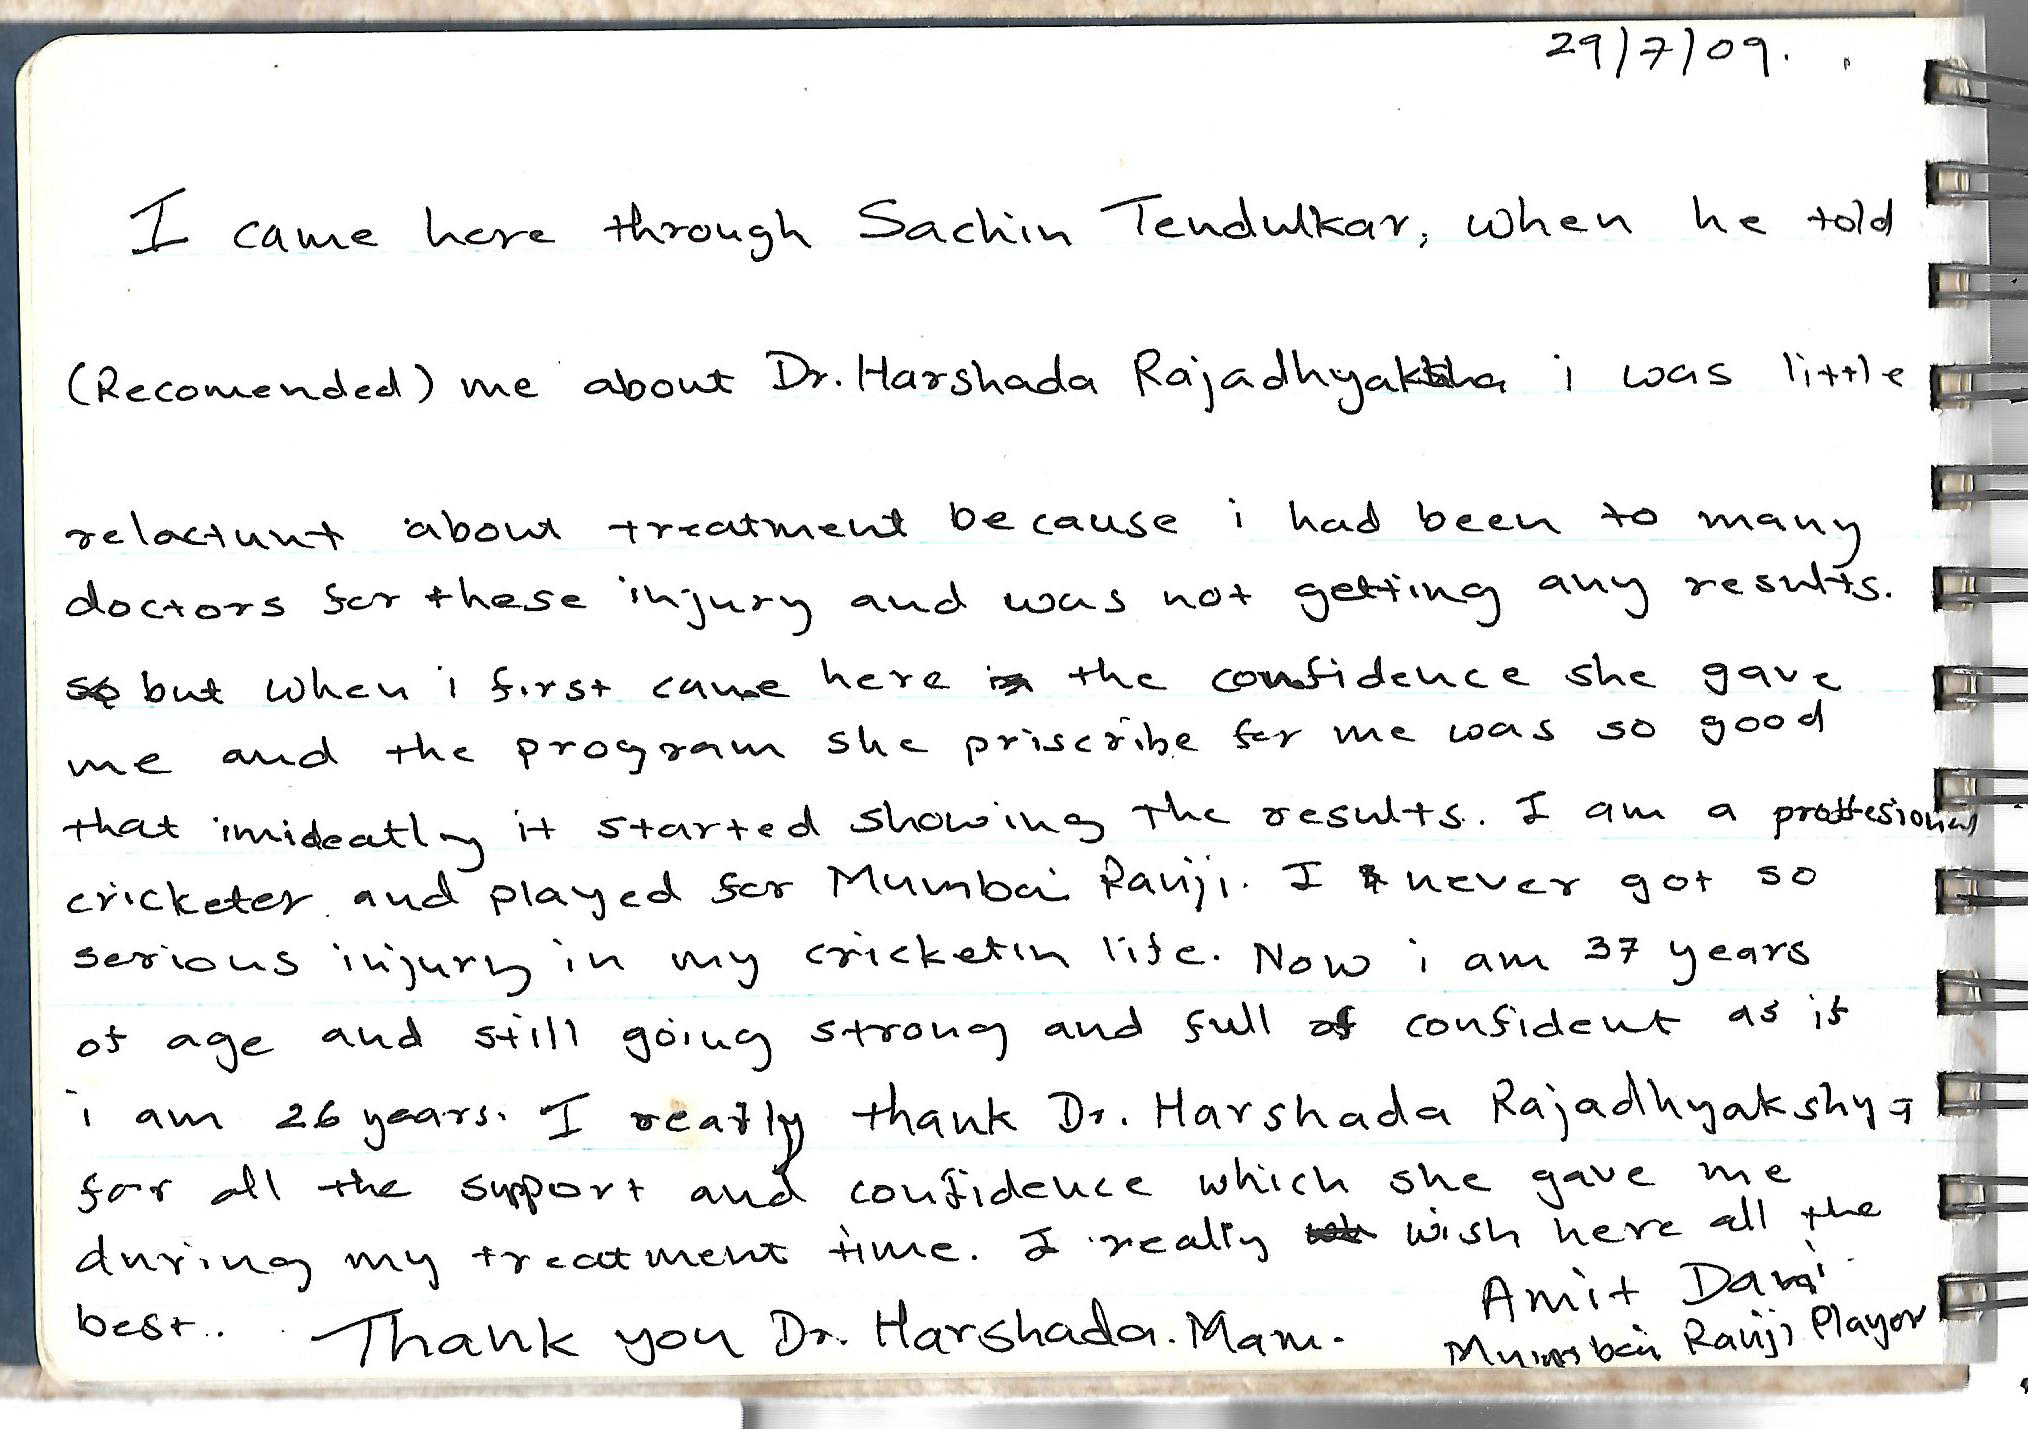 29/7/09.
I came here through Sachin Tendulkar, when he told
(Recomended) me about Dr. Harshada Rajadhyaksha i was little
relactunt about treatment because i had been to many
doctors for these injury and was not getting any results.
but when i first came here the confidence she gave
me and the program she priscribe for me was so good
that imideatly it started showing the results. I am a proffesional
cricketer and played for Mumbai Ranji. I never got so
serious injury in my cricketin life. Now i am 37 years
of age and still going strong and full of confident as if
i am 26 years. I really thank Dr. Harshada Rajadhyakshya
for all the support and confidence which she gave me
during my treatment time. I really wish here all the
best..
Thank you Dr. Harshada. Mam.
Amit Dani
Mumbai Ranji Player